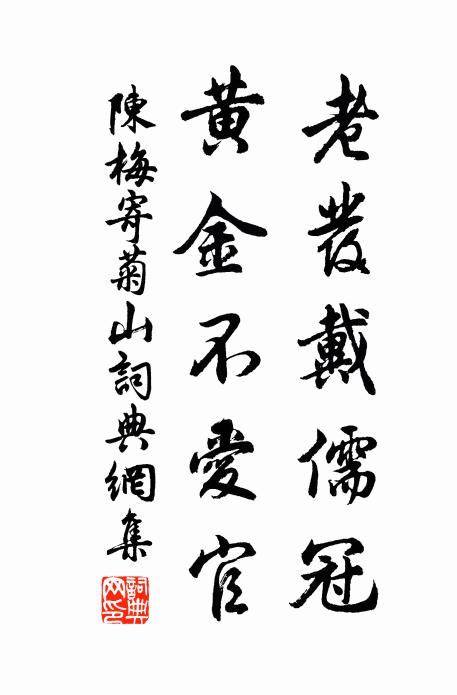 老發戴儒冠
黃金不愛官
陳梅寄菊山詞典網集
詞典網印